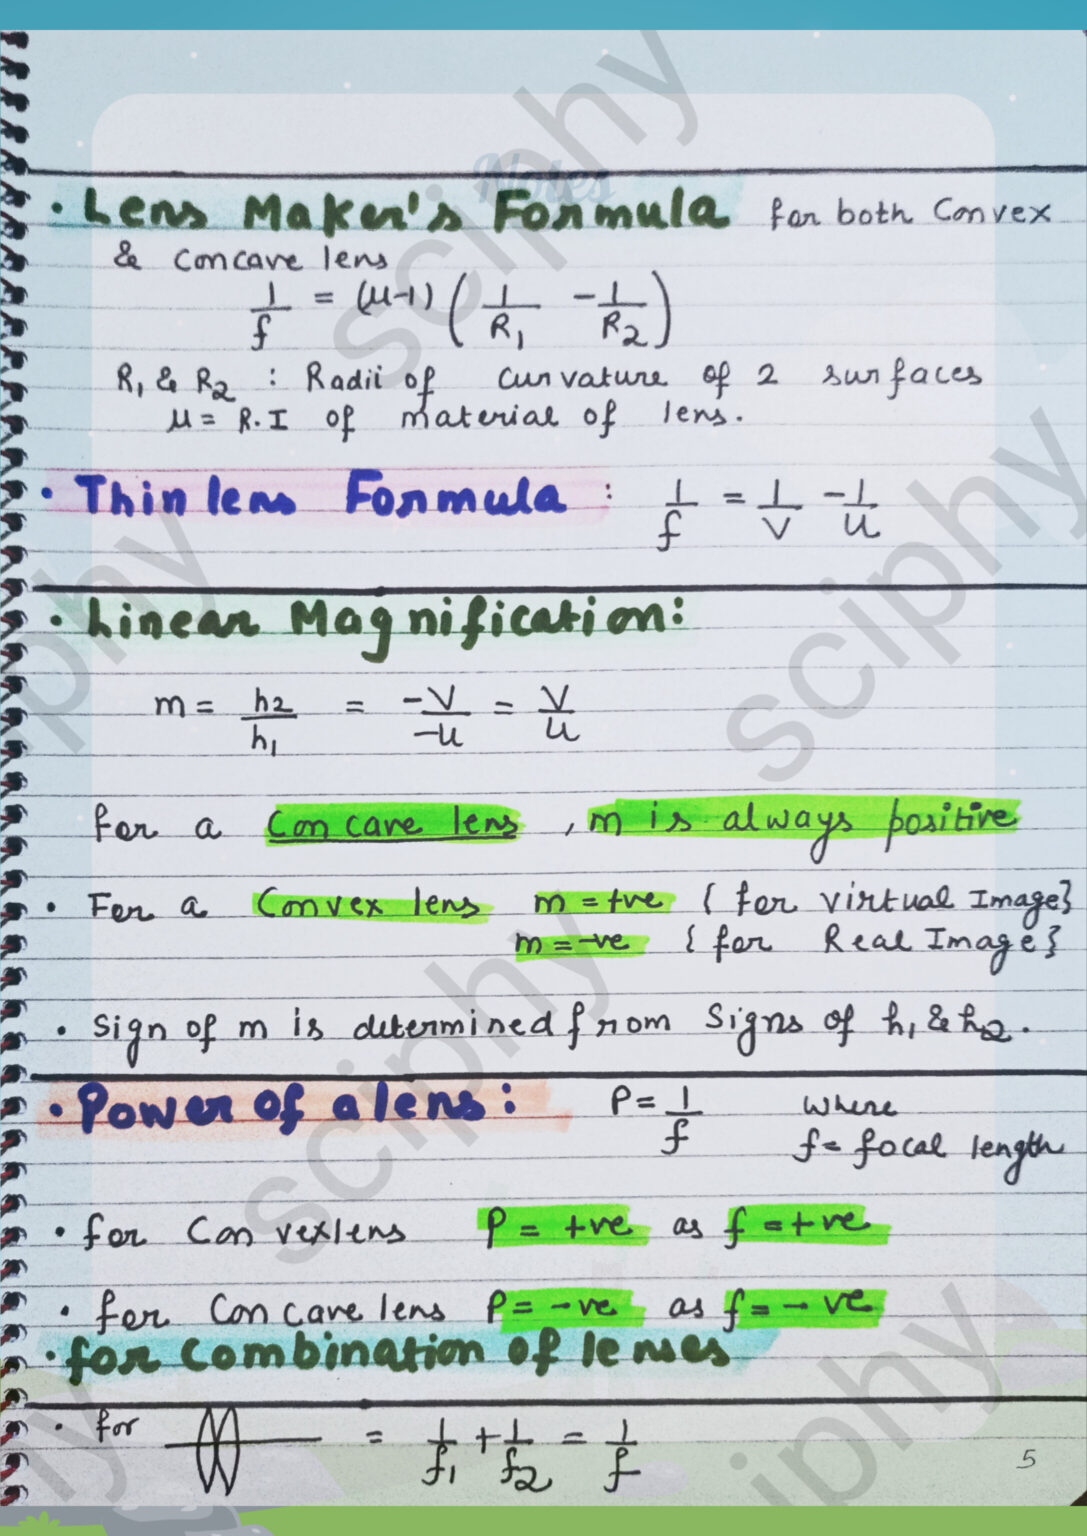 Notes
• Lens Maker's Formula for both Convex
& concave lens
1/f = (μ-1) (1/R₁ - 1/R₂)
R₁ & R₂ : Radii of curvature of 2 surfaces
μ = R.I of material of lens.
• Thin lens Formula : 1/f = 1/v - 1/u
• Linear Magnification:
m = h₂/h₁ = -v/-u = v/u
for a Concave lens, m is always positive
• For a Convex lens m = +ve { for virtual Image}
m = -ve { for Real Image }
• Sign of m is determined from Signs of h₁ & h₂.
• Power of a lens: P = 1/f where
f = focal length
• for Convex lens P = +ve as f = +ve
• for Concave lens P = -ve as f = - ve
• for combination of lenses
• for = 1/f₁ + 1/f₂ = 1/f
5
sciphy
sciphy
sciphy
sciphy
sciphy
sciphy